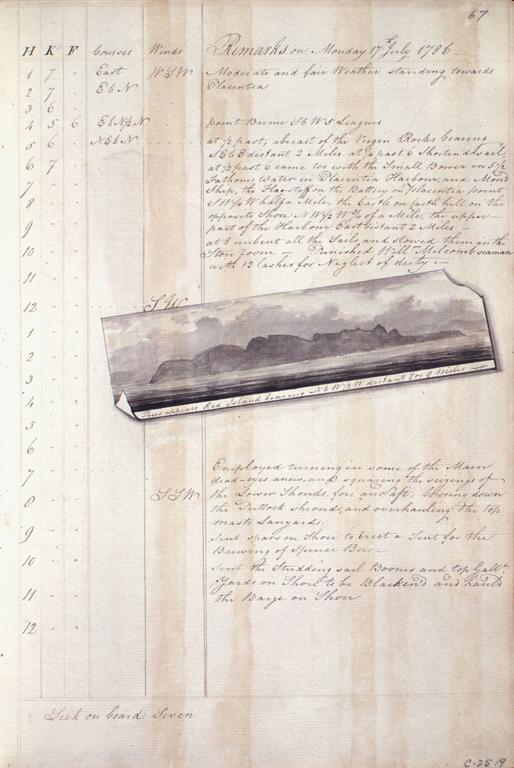 67
H K F Courses Winds Remarks on Monday 17th July 1786
1 7 - East WSW Moderate and fair Weather standing towards
2 7 - EbN Placentia
3 6 -
4 5 6 EbN½N point Breme SbW 5 Leagues
5 6 - NEbN at ½ past, abreast of the Virgin Rocks bearing
SEbE distant 2 Miles. at ¼ past 6 Shortend sail,
6 7 at ½ past 6 came too with the Small Bower in 5½
7 Fathoms Water in Placentia Harbour, and Moor'd
Ship, the Flag staff on the Battery on placentia point
8 SW½W half a Mile, the Castle on Castle hill on the
9 opposite Shore NW½W ¾ of a Mile, the upper
part of the Harbour East distant 2 Miles -
10 at 8 unbent all the Sails, and stowed them in the
Store room - Punished Willm Melcomb seaman
11 with 12 lashes for Neglect of duty -
12 SW
1
2
3
Thus appears Red Island bearing NbW½W distant 8 or 9 Miles
4
5
6
7 Employed turning in some of the Main
dead-eyes anew, and squaring the seizings of
8 SSW the Lower Shrouds, fore and aft. Bowsing down
the Futtock shrouds, and overhauling the top
masts Lanyards.
9 Sent spars on Shore to Erect a Tent for the
Brewing of Spruce Beer
10 Sent the Studding sail Booms and top Gallt
Yards on Shore to be Blacken'd and hauld
11 the Barge on Shore
12
Sick on board Seven
C-2519